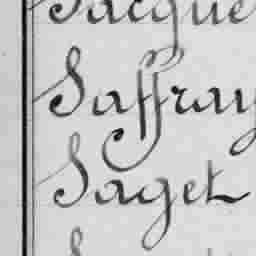 Jacque
Saffray
Saget